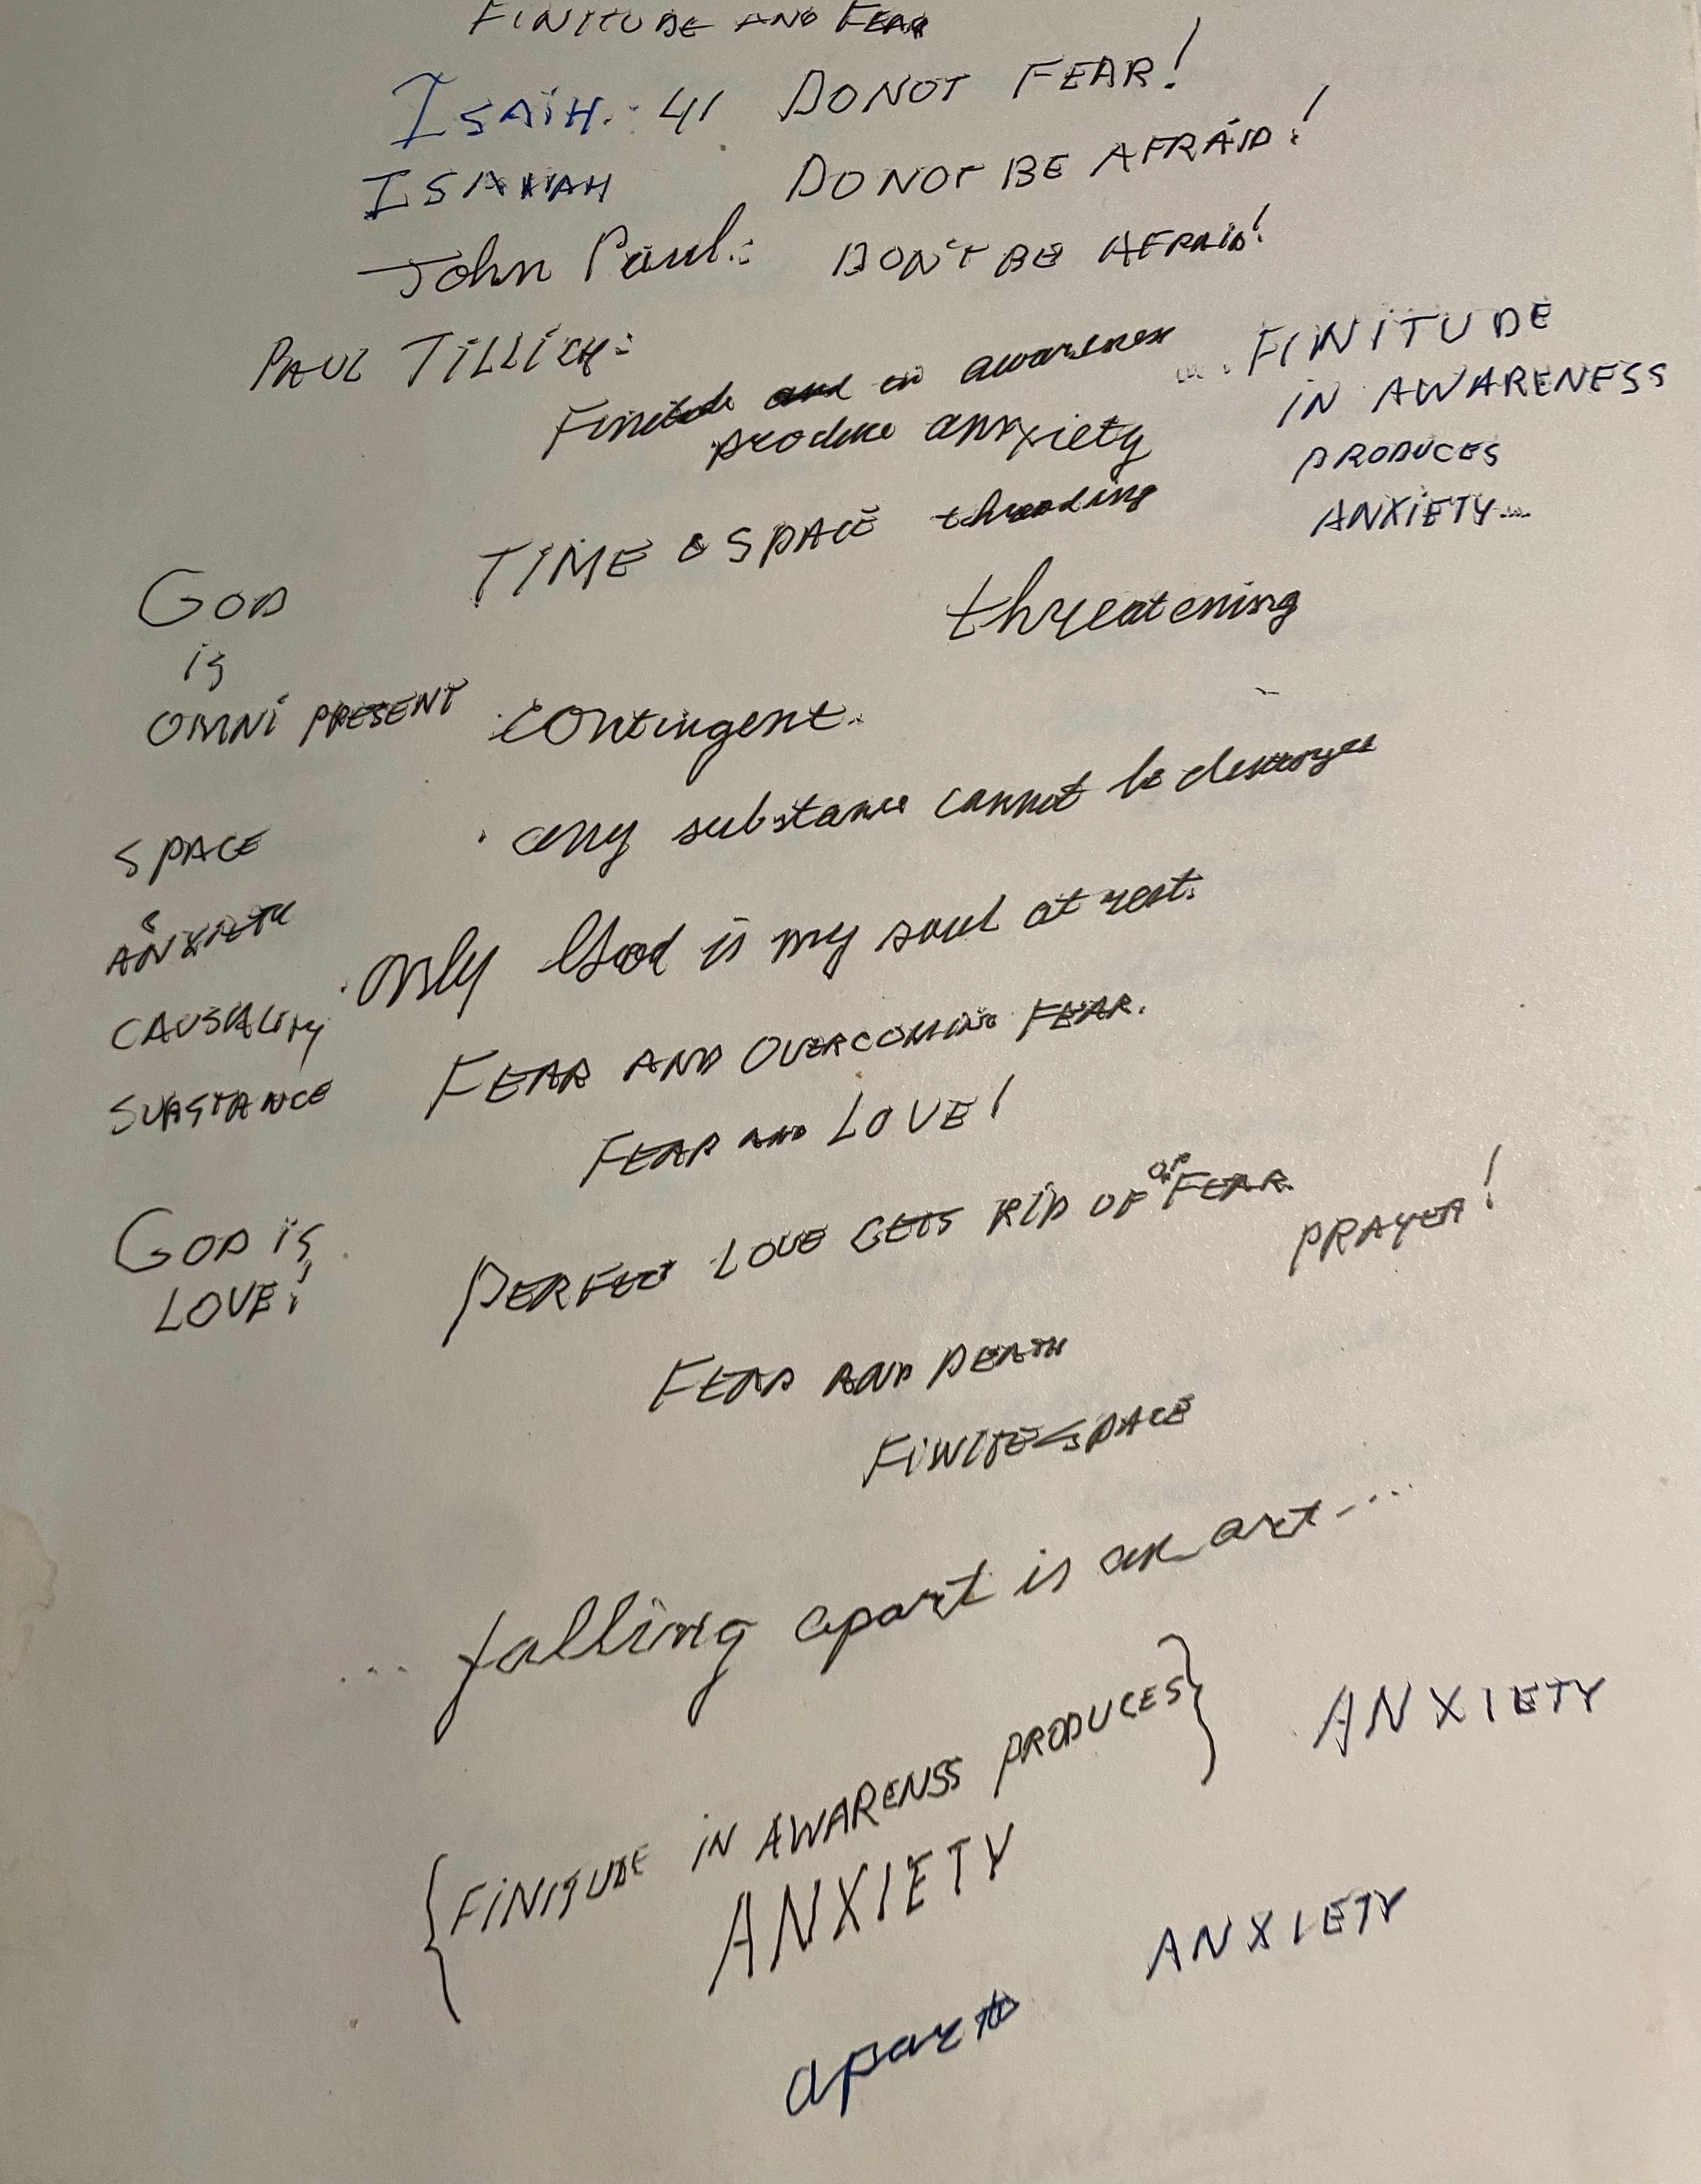 FINITUDE AND FEAR
ISAIH.: 41 DO NOT FEAR!
ISAIAH DO NOT BE AFRAID!
John Paul: DON'T BE AFRAID!
PAUL TILLICH:
Finitude and in awareness
produce anxiety
... FINITUDE
IN AWARENESS
PRODUCES
ANXIETY...
TIME & SPACE
threatening
GOD
is
OMNI PRESENT
contingent.
SPACE
any substance cannot be destroyed
ANXIETY
only God is my soul at rest.
CAUSALITY
SUBSTANCE
FEAR AND OVERCOMING FEAR.
FEAR AND LOVE!
GOD is
LOVE!
PERFECT LOVE GETS RID OF FEAR.
PRAYER!
FEAR AND DEATH
FINITE SPACE
... falling apart is an art ....
{FINITUDE IN AWARENSS PRODUCES} ANXIETY
ANXIETY
ANXIETY
apart